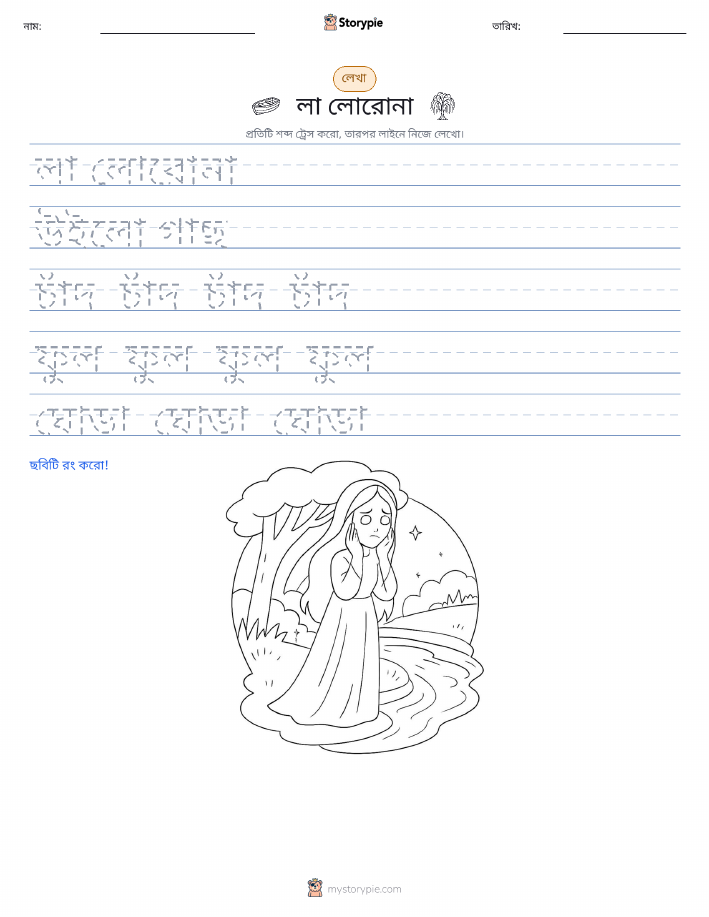 নাম: Storypie তারিখ:
লেখা
লা লোরোনা
প্রতিটি শব্দ ট্রেস করো, তারপর লাইনে নিজে লেখো।
লা লোরোনা
উইলো গাছ
চাঁদ চাঁদ চাঁদ চাঁদ
ফুল ফুল ফুল ফুল
ঘোড়া ঘোড়া ঘোড়া
ছবিটি রং করো!
mystorypie.com